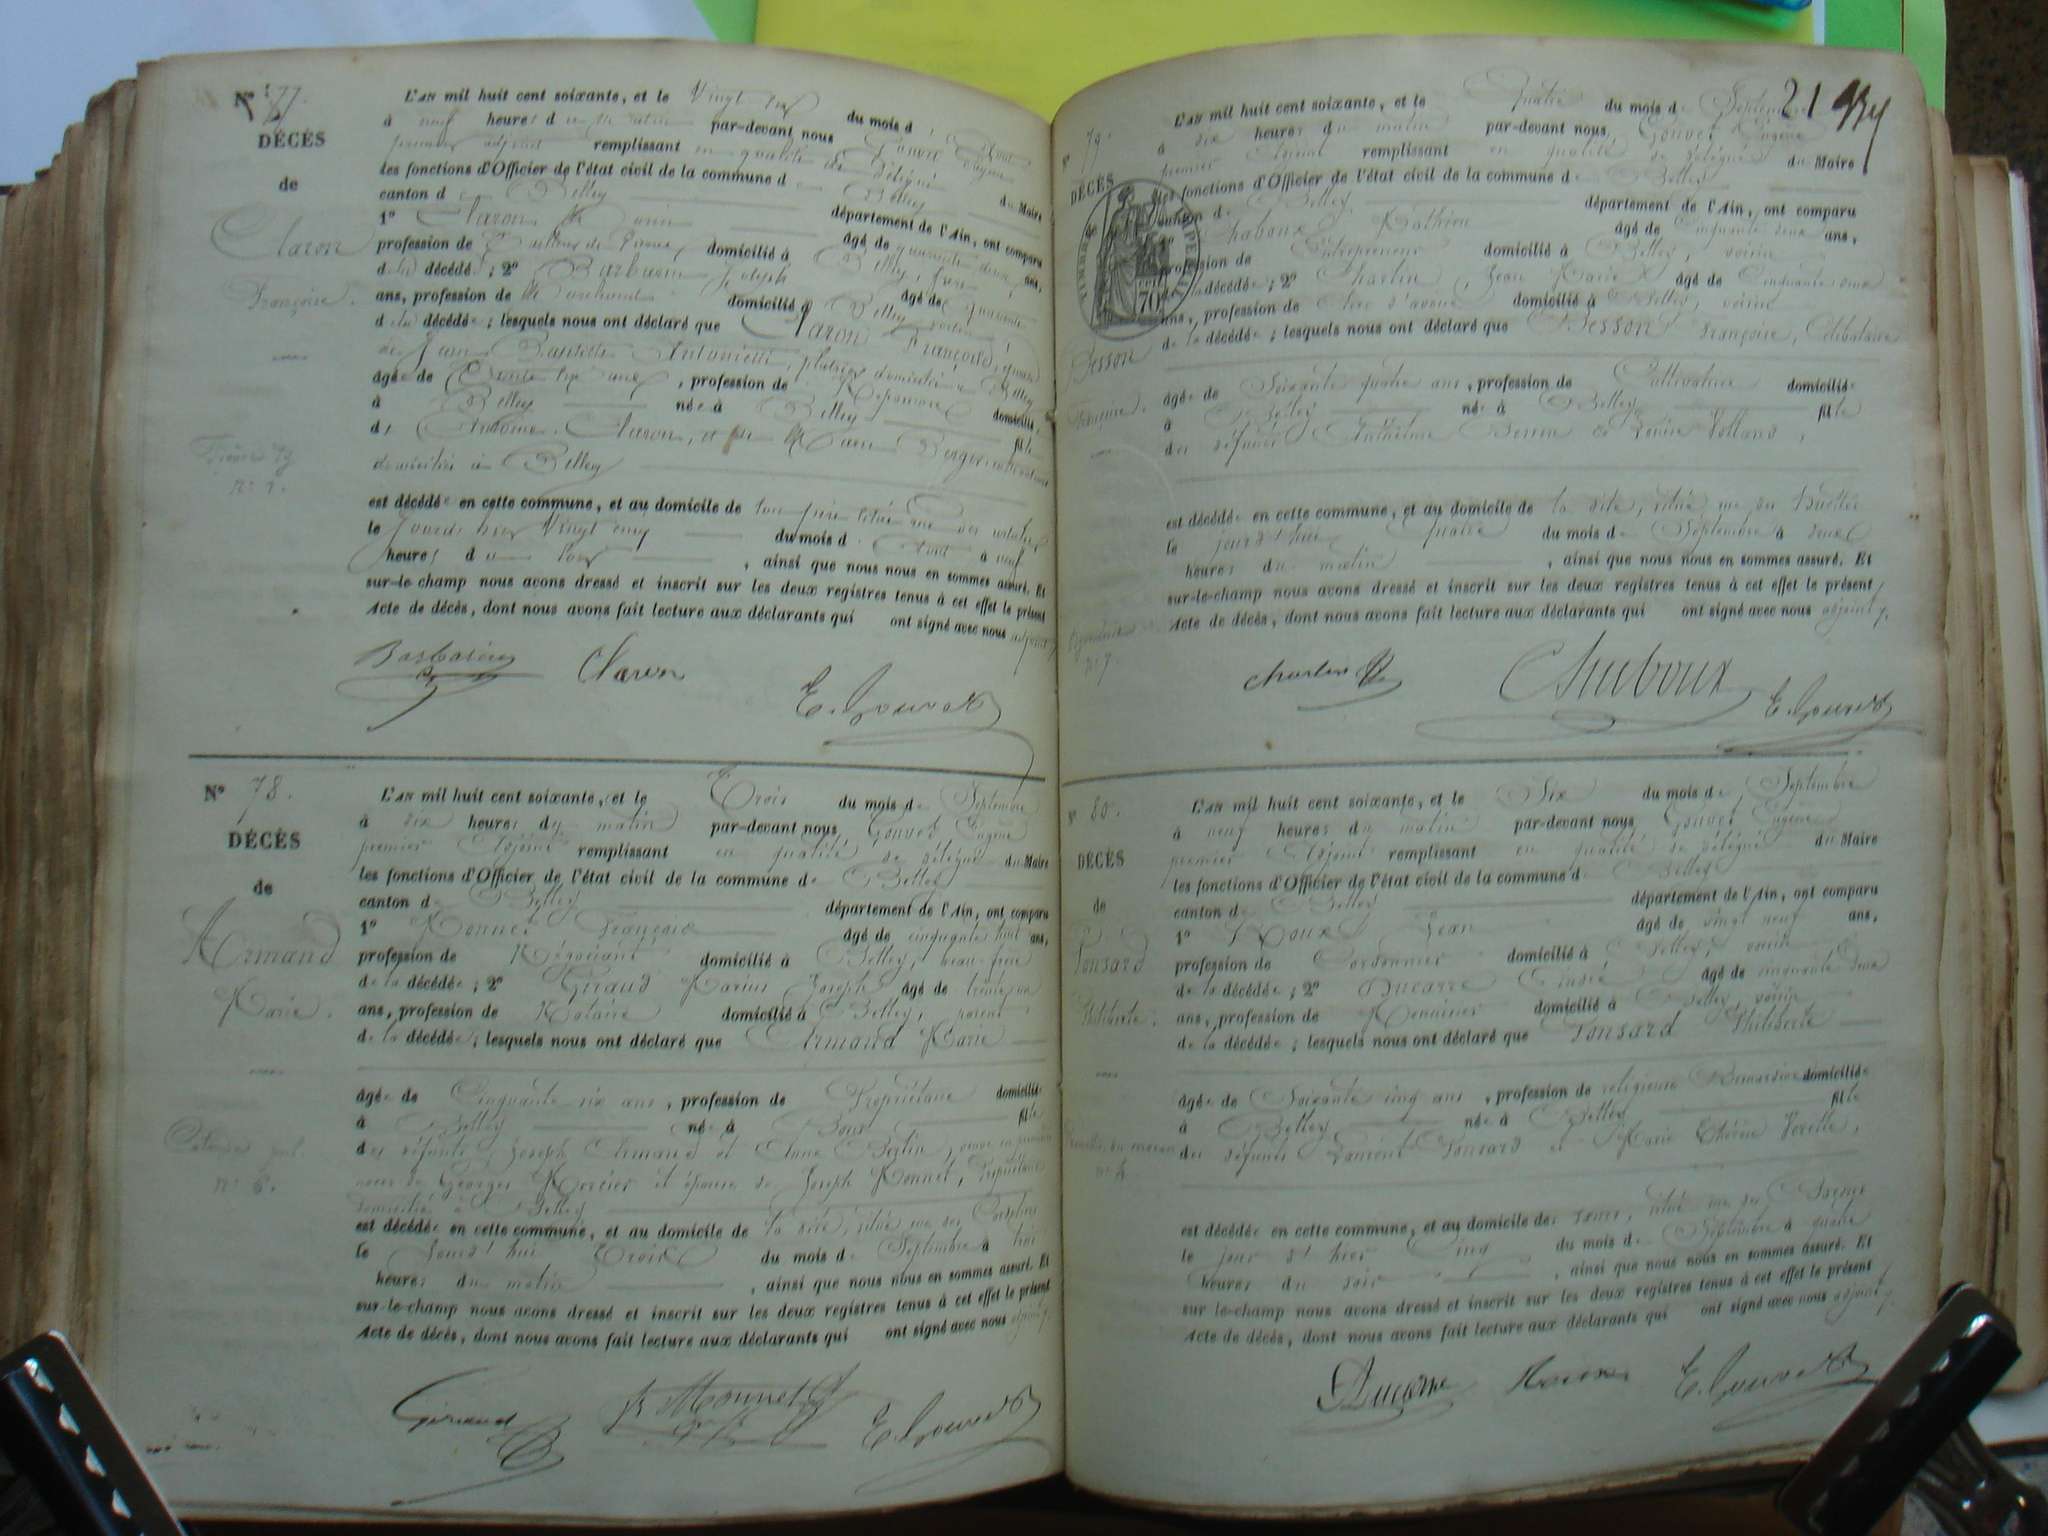 N° 77.
DÉCÈS
de
Claron
Françoise.
L'AN mil huit cent soixante, et le Vingt six du mois d'Août
à neuf heures du matin par-devant nous Gouvet Eugène
premier adjoint remplissant en qualité de délégué du Maire
les fonctions d'Officier de l'état civil de la commune de Belley
canton de Belley département de l'Ain, ont comparu
1° Claron âgé de quarante deux ans,
profession de Tailleur de Pierres domicilié à Belley, frère
de la décédée; 2° Joseph âgé de quarante
ans, profession de Marchand domicilié à Belley, voisin
de la décédée; lesquels nous ont déclaré que Claron Françoise, épouse
de Jean Baptiste Antonietti, plâtrier domicilié à Belley
âgée de Trente six ans, profession de domiciliée
à Belley née à Belley fille
d'Antoine Claron, et de Berger
domiciliés à Belley
est décédée en cette commune, et au domicile de son père situé rue des
le jour d'hier Vingt cinq du mois d'Août à neuf
heures du soir, ainsi que nous nous en sommes assuré. Et
sur-le-champ nous avons dressé et inscrit sur les deux registres tenus à cet effet le présent
Acte de décès, dont nous avons fait lecture aux déclarants qui ont signé avec nous adjoint
Claron
E. Gouvet
N° 78.
DÉCÈS
de
Armand
Marie.
n° 6.
L'AN mil huit cent soixante, et le Trois du mois de Septembre
à dix heures du matin par-devant nous Gouvet Eugène
premier Adjoint remplissant en qualité de délégué du Maire
les fonctions d'Officier de l'état civil de la commune de Belley
canton de Belley département de l'Ain, ont comparu
1° Monnet François âgé de cinquante huit ans,
profession de Négociant domicilié à Belley, beau-frère
de la décédée; 2° Giraud Marius Joseph âgé de trente un
ans, profession de Notaire domicilié à Belley, parent
de la décédée; lesquels nous ont déclaré que Armand Marie
âgée de Cinquante six ans, profession de Propriétaire domiciliée
à Belley née à fille
des défunts Joseph Armand et Anne Bertin, veuve en premières
noces de Georges Mercier et épouse de Joseph Monnet, Propriétaire
domicilié à Belley
est décédée en cette commune, et au domicile de la dite, situé rue des Cordeliers
le jourd'hui Trois du mois de Septembre à trois
heures du matin, ainsi que nous nous en sommes assuré. Et
sur-le-champ nous avons dressé et inscrit sur les deux registres tenus à cet effet le présent
Acte de décès, dont nous avons fait lecture aux déclarants qui ont signé avec nous adjoint
Giraud
Monnet
E. Gouvet
21
N° 79.
DÉCÈS
Besson
Françoise.
n° 7.
TIMBRE IMPÉRIAL
70
L'AN mil huit cent soixante, et le Quatre du mois de Septembre
à dix heures du matin par-devant nous Gouvet Eugène
premier Adjoint remplissant en qualité de délégué du Maire
les fonctions d'Officier de l'état civil de la commune de Belley
canton de Belley département de l'Ain, ont comparu
1° Chaboux Mathieu âgé de Cinquante deux ans,
profession de Entrepreneur domicilié à Belley, voisin
de la décédée; 2° Charlin, Jean Marie âgé de Cinquante deux
ans, profession de clerc d'avoué domicilié à Belley, voisin
de la décédée; lesquels nous ont déclaré que Besson Françoise, Célibataire
âgée de Soixante quatre ans, profession de Cultivatrice domiciliée
à Belley née à Belley fille
des défunts Anthelme Besson et Volland,
est décédée en cette commune, et au domicile de la dite, située rue des
le jourd'hui quatre du mois de Septembre à deux
heures du matin, ainsi que nous nous en sommes assuré. Et
sur-le-champ nous avons dressé et inscrit sur les deux registres tenus à cet effet le présent
Acte de décès, dont nous avons fait lecture aux déclarants qui ont signé avec nous adjoint
Charlin
Chaboux
E. Gouvet
N° 80.
DÉCÈS
de
Ponsard
Philiberte.
n° 4
L'AN mil huit cent soixante, et le Six du mois de Septembre
à neuf heures du matin par-devant nous Gouvet Eugène
premier Adjoint remplissant en qualité de délégué du Maire
les fonctions d'Officier de l'état civil de la commune de Belley
canton de Belley département de l'Ain, ont comparu
1° Roux Jean âgé de vingt neuf ans,
profession de Cordonnier domicilié à Belley, voisin
de la décédée; 2° Ducarre André âgé de cinquante deux
ans, profession de Menuisier domicilié à Belley, voisin
de la décédée; lesquels nous ont déclaré que Ponsard Philiberte
âgée de Soixante cinq ans, profession de religieuse Bernardine domiciliée
à Belley née à Belley fille
des défunts Laurent Ponsard et Marie Thérèse
est décédée en cette commune, et au domicile de soeurs, situé rue des
le jour d'hier Cinq du mois de Septembre à quatre
heures du soir, ainsi que nous nous en sommes assuré. Et
sur-le-champ nous avons dressé et inscrit sur les deux registres tenus à cet effet le présent
Acte de décès, dont nous avons fait lecture aux déclarants qui ont signé avec nous adjoint
Ducarre
Roux
E. Gouvet